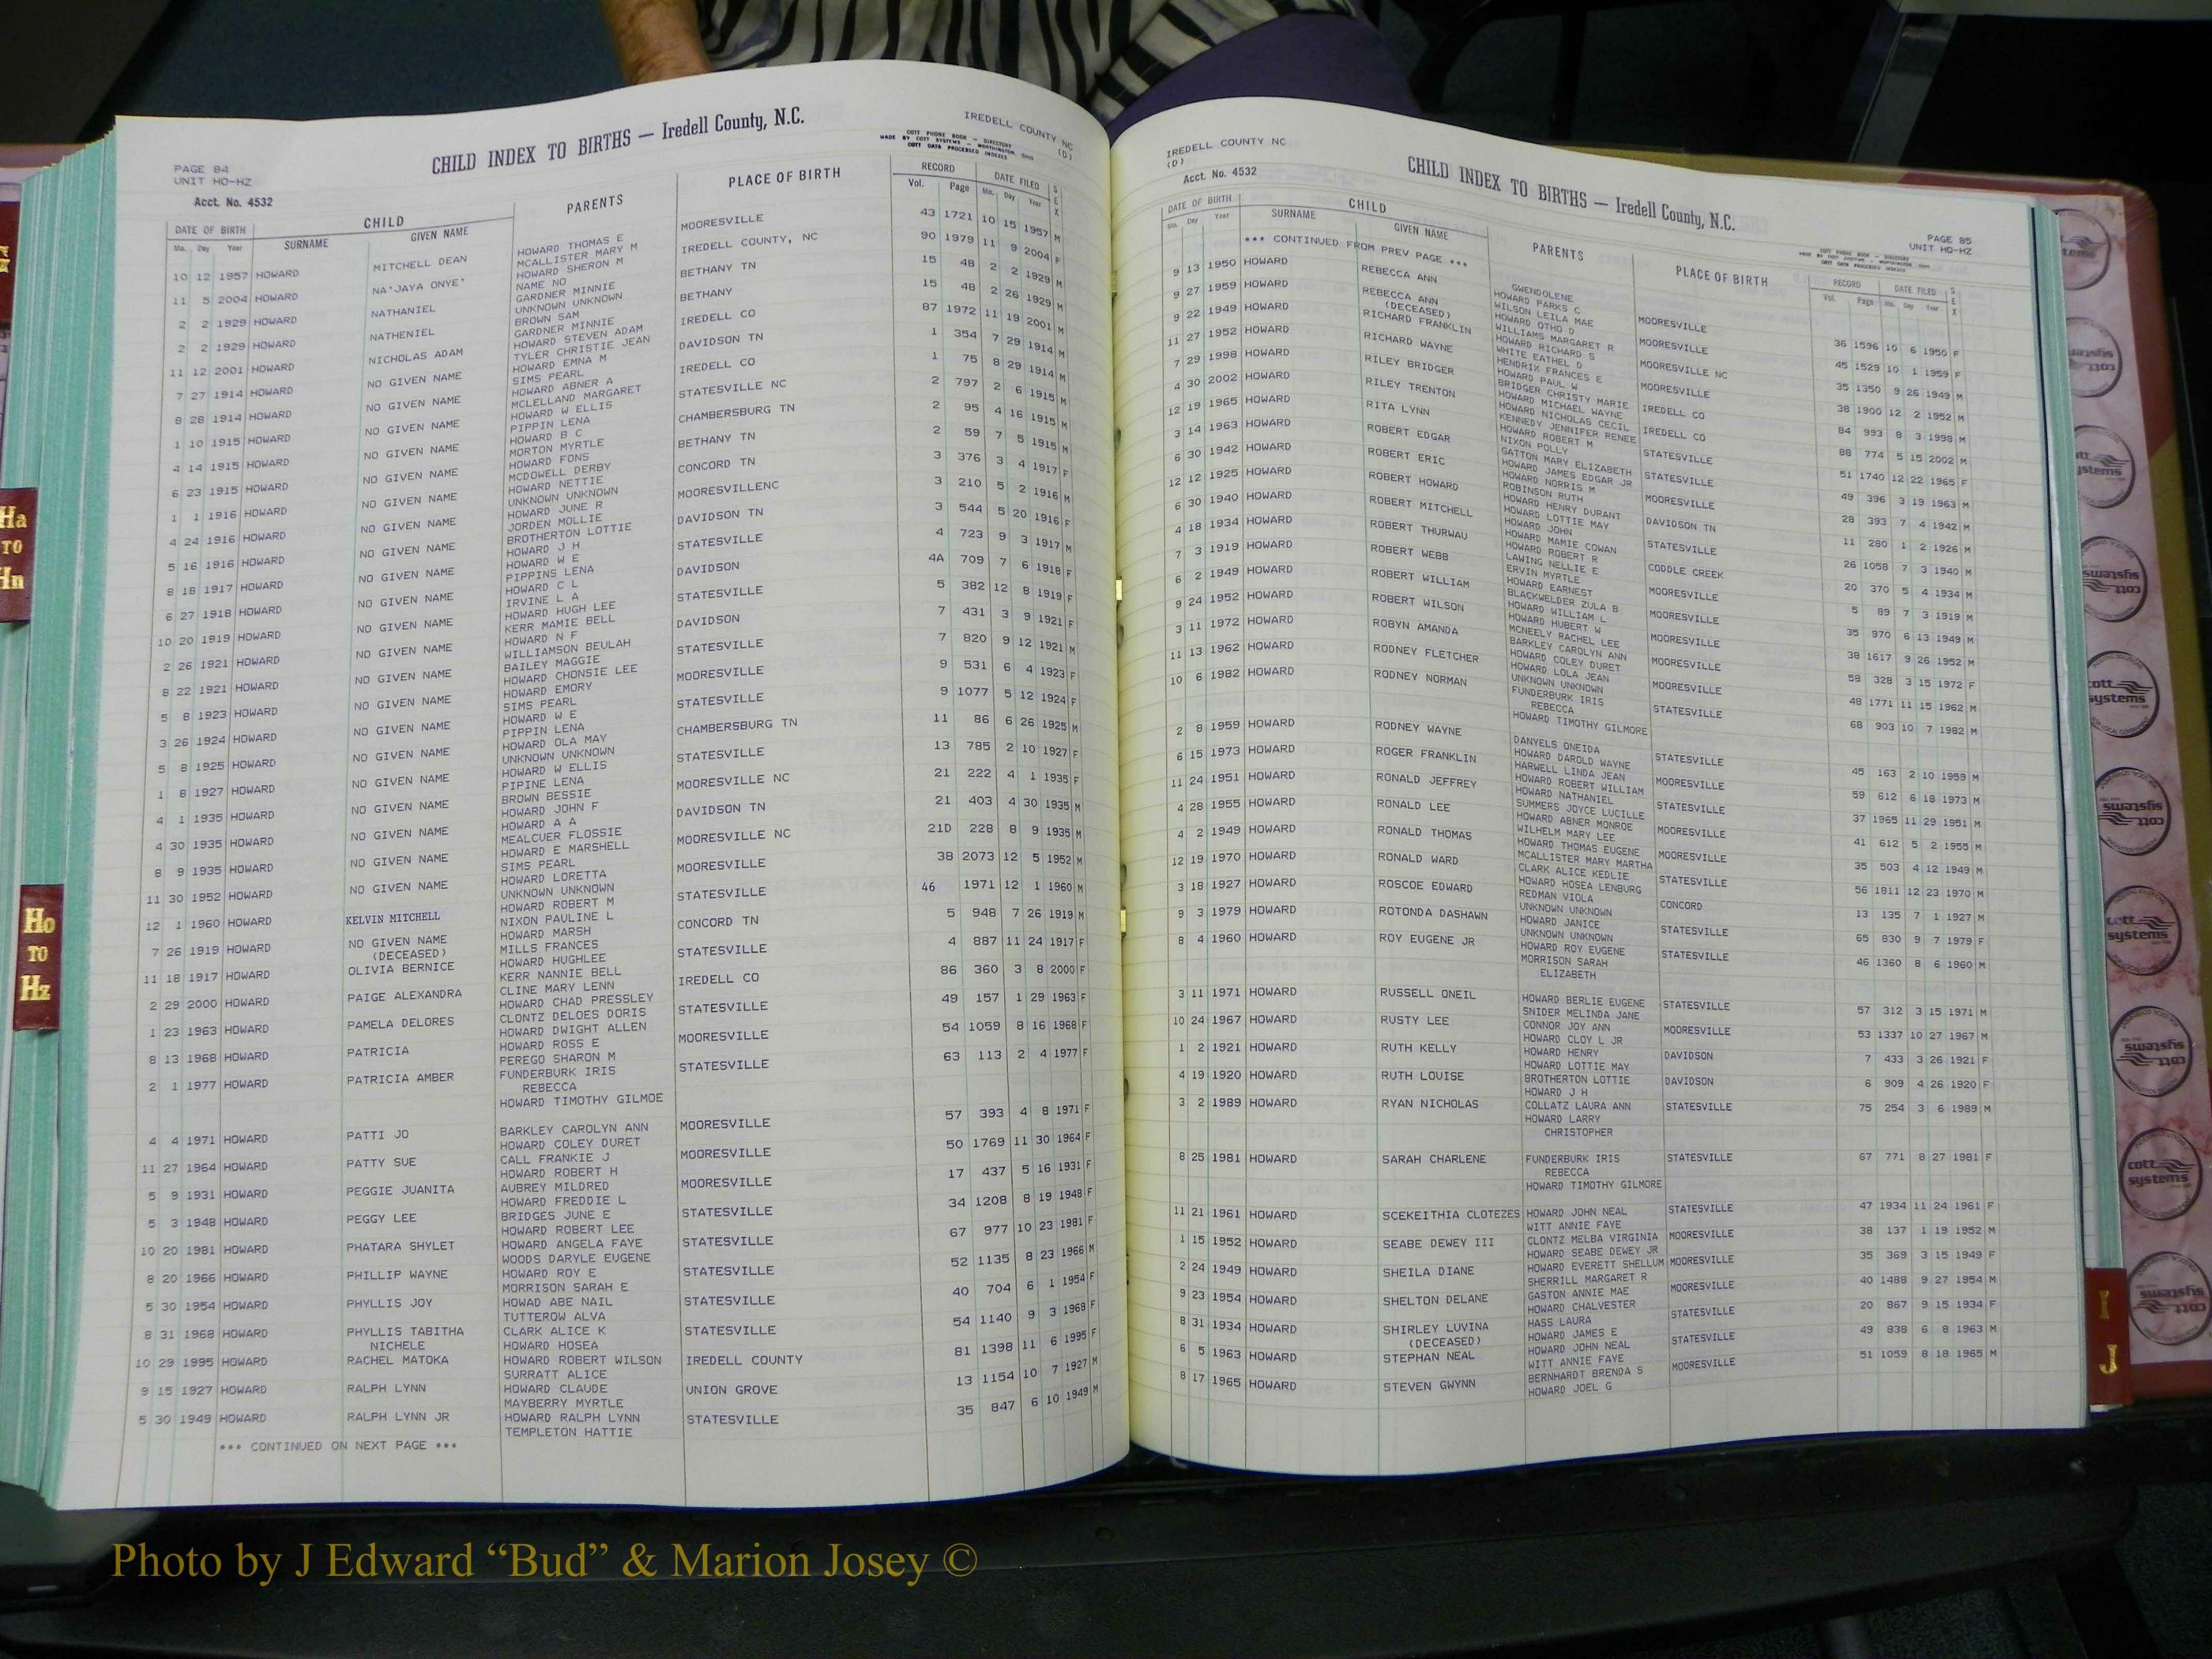 CHILD INDEX TO BIRTHS — Iredell County, N.C.
IREDELL COUNTY NC
(D)
COTT PHONE BOOK - DIRECTORY
MADE BY COTT SYSTEMS - WORTHINGTON, OHIO
COTT DATA PROCESSED INDEXES
PAGE 84
UNIT HO-HZ
Acct. No. 4532
DATE OF BIRTH CHILD PARENTS PLACE OF BIRTH RECORD DATE FILED SEX
Mo. Day Year SURNAME GIVEN NAME Vol. Page Mo. Day Year
10 12 1957 HOWARD MITCHELL DEAN HOWARD THOMAS E MOORESVILLE 43 1721 10 15 1957 M
MCALLISTER MARY M
11 5 2004 HOWARD NA'JAYA ONYE' HOWARD SHERON M IREDELL COUNTY, NC 90 1979 11 9 2004 F
NAME NO
2 2 1929 HOWARD NATHANIEL GARDNER MINNIE BETHANY TN 15 48 2 2 1929 M
UNKNOWN UNKNOWN
2 2 1929 HOWARD NATHENIEL BROWN SAM BETHANY 15 48 2 26 1929 M
GARDNER MINNIE
11 12 2001 HOWARD NICHOLAS ADAM HOWARD STEVEN ADAM IREDELL CO 87 1972 11 19 2001 M
TYLER CHRISTIE JEAN
7 27 1914 HOWARD NO GIVEN NAME HOWARD EMNA M DAVIDSON TN 1 354 7 29 1914 M
SIMS PEARL
8 28 1914 HOWARD NO GIVEN NAME HOWARD ABNER A IREDELL CO 1 75 8 29 1914 M
MCLELLAND MARGARET
1 10 1915 HOWARD NO GIVEN NAME HOWARD W ELLIS STATESVILLE NC 2 797 2 6 1915 M
PIPPIN LENA
4 14 1915 HOWARD NO GIVEN NAME HOWARD B C CHAMBERSBURG TN 2 95 4 16 1915 M
MORTON MYRTLE
6 23 1915 HOWARD NO GIVEN NAME HOWARD FONS BETHANY TN 2 59 7 5 1915 M
MCDOWELL DERBY
1 1 1916 HOWARD NO GIVEN NAME HOWARD NETTIE CONCORD TN 3 376 3 4 1917 F
UNKNOWN UNKNOWN
4 24 1916 HOWARD NO GIVEN NAME HOWARD JUNE R MOORESVILLENC 3 210 5 2 1916 M
JORDEN MOLLIE
5 16 1916 HOWARD NO GIVEN NAME BROTHERTON LOTTIE DAVIDSON TN 3 544 5 20 1916 F
HOWARD J H
8 18 1917 HOWARD NO GIVEN NAME HOWARD W E STATESVILLE 4 723 9 3 1917 M
PIPPINS LENA
6 27 1918 HOWARD NO GIVEN NAME HOWARD C L DAVIDSON 4A 709 7 6 1918 F
IRVINE L A
10 20 1919 HOWARD NO GIVEN NAME HOWARD HUGH LEE STATESVILLE 5 382 12 8 1919 F
KERR MAMIE BELL
2 26 1921 HOWARD NO GIVEN NAME HOWARD N F DAVIDSON 7 431 3 9 1921 F
WILLIAMSON BEULAH
8 22 1921 HOWARD NO GIVEN NAME BAILEY MAGGIE STATESVILLE 7 820 9 12 1921 M
HOWARD CHONSIE LEE
5 8 1923 HOWARD NO GIVEN NAME HOWARD EMORY MOORESVILLE 9 531 6 4 1923 F
SIMS PEARL
3 26 1924 HOWARD NO GIVEN NAME HOWARD W E STATESVILLE 9 1077 5 12 1924 F
PIPPIN LENA
5 8 1925 HOWARD NO GIVEN NAME HOWARD OLA MAY CHAMBERSBURG TN 11 86 6 26 1925 M
UNKNOWN UNKNOWN
1 8 1927 HOWARD NO GIVEN NAME HOWARD W ELLIS STATESVILLE 13 785 2 10 1927 F
PIPINE LENA
4 1 1935 HOWARD NO GIVEN NAME BROWN BESSIE MOORESVILLE NC 21 222 4 1 1935 F
HOWARD JOHN F
4 30 1935 HOWARD NO GIVEN NAME HOWARD A A DAVIDSON TN 21 403 4 30 1935 M
MEALCUER FLOSSIE
8 9 1935 HOWARD NO GIVEN NAME HOWARD E MARSHELL MOORESVILLE NC 21D 228 8 9 1935 M
SIMS PEARL
11 30 1952 HOWARD NO GIVEN NAME HOWARD LORETTA MOORESVILLE 38 2073 12 5 1952 M
UNKNOWN UNKNOWN
12 1 1960 HOWARD KELVIN MITCHELL HOWARD ROBERT M STATESVILLE 46 1971 12 1 1960 M
NIXON PAULINE L
7 26 1919 HOWARD NO GIVEN NAME HOWARD MARSH CONCORD TN 5 948 7 26 1919 M
(DECEASED) MILLS FRANCES
11 18 1917 HOWARD OLIVIA BERNICE HOWARD HUGHLEE STATESVILLE 4 887 11 24 1917 F
KERR NANNIE BELL
2 29 2000 HOWARD PAIGE ALEXANDRA CLINE MARY LENN IREDELL CO 86 360 3 8 2000 F
HOWARD CHAD PRESSLEY
1 23 1963 HOWARD PAMELA DELORES CLONTZ DELOES DORIS STATESVILLE 49 157 1 29 1963 F
HOWARD DWIGHT ALLEN
8 13 1968 HOWARD PATRICIA HOWARD ROSS E MOORESVILLE 54 1059 8 16 1968 F
PEREGO SHARON M
2 1 1977 HOWARD PATRICIA AMBER FUNDERBURK IRIS STATESVILLE 63 113 2 4 1977 F
REBECCA
HOWARD TIMOTHY GILMOE
4 4 1971 HOWARD PATTI JO BARKLEY CAROLYN ANN MOORESVILLE 57 393 4 8 1971 F
HOWARD COLEY DURET
11 27 1964 HOWARD PATTY SUE CALL FRANKIE J MOORESVILLE 50 1769 11 30 1964 F
HOWARD ROBERT H
5 9 1931 HOWARD PEGGIE JUANITA AUBREY MILDRED MOORESVILLE 17 437 5 16 1931 F
HOWARD FREDDIE L
5 3 1948 HOWARD PEGGY LEE BRIDGES JUNE E STATESVILLE 34 1208 8 19 1948 F
HOWARD ROBERT LEE
10 20 1981 HOWARD PHATARA SHYLET HOWARD ANGELA FAYE STATESVILLE 67 977 10 23 1981 F
WOODS DARYLE EUGENE
8 20 1966 HOWARD PHILLIP WAYNE HOWARD ROY E STATESVILLE 52 1135 8 23 1966 M
MORRISON SARAH E
5 30 1954 HOWARD PHYLLIS JOY HOWAD ABE NAIL STATESVILLE 40 704 6 1 1954 F
TUTTEROW ALVA
8 31 1968 HOWARD PHYLLIS TABITHA CLARK ALICE K STATESVILLE 54 1140 9 3 1968 F
NICHELE HOWARD HOSEA
10 29 1995 HOWARD RACHEL MATOKA HOWARD ROBERT WILSON IREDELL COUNTY 81 1398 11 6 1995 F
SURRATT ALICE
9 15 1927 HOWARD RALPH LYNN HOWARD CLAUDE UNION GROVE 13 1154 10 7 1927 M
MAYBERRY MYRTLE
5 30 1949 HOWARD RALPH LYNN JR HOWARD RALPH LYNN STATESVILLE 35 847 6 10 1949 M
TEMPLETON HATTIE
*** CONTINUED ON NEXT PAGE ***
IREDELL COUNTY NC
(D)
Acct. No. 4532
CHILD INDEX TO BIRTHS — Iredell County, N.C.
PAGE 85
UNIT HO-HZ
COTT PHONE BOOK - DIRECTORY
MADE BY COTT SYSTEMS - WORTHINGTON, OHIO
COTT DATA PROCESSED INDEXES
DATE OF BIRTH CHILD PARENTS PLACE OF BIRTH RECORD DATE FILED SEX
Mo. Day Year SURNAME GIVEN NAME Vol. Page Mo. Day Year
*** CONTINUED FROM PREV PAGE ***
GWENDOLENE
9 13 1950 HOWARD REBECCA ANN HOWARD PARKS C MOORESVILLE 36 1596 10 6 1950 F
WILSON LEILA MAE
9 27 1959 HOWARD REBECCA ANN HOWARD OTHO D MOORESVILLE 45 1529 10 1 1959 F
(DECEASED) WILLIAMS MARGARET R
9 22 1949 HOWARD RICHARD FRANKLIN HOWARD RICHARD S MOORESVILLE NC 35 1350 9 26 1949 M
WHITE EATHEL D
11 27 1952 HOWARD RICHARD WAYNE HENDRIX FRANCES E MOORESVILLE 38 1900 12 2 1952 M
HOWARD PAUL W
7 29 1998 HOWARD RILEY BRIDGER BRIDGER CHRISTY MARIE IREDELL CO 84 993 8 3 1998 M
HOWARD MICHAEL WAYNE
4 30 2002 HOWARD RILEY TRENTON HOWARD NICHOLAS CECIL IREDELL CO 88 774 5 15 2002 M
KENNEDY JENNIFER RENEE
12 19 1965 HOWARD RITA LYNN HOWARD ROBERT M STATESVILLE 51 1740 12 22 1965 F
NIXON POLLY
3 14 1963 HOWARD ROBERT EDGAR GATTON MARY ELIZABETH STATESVILLE 49 396 3 19 1963 M
HOWARD JAMES EDGAR JR
6 30 1942 HOWARD ROBERT ERIC HOWARD NORRIS M MOORESVILLE 28 393 7 4 1942 M
ROBINSON RUTH
12 12 1925 HOWARD ROBERT HOWARD HOWARD HENRY DURANT DAVIDSON TN 11 280 1 2 1926 M
HOWARD LOTTIE MAY
6 30 1940 HOWARD ROBERT MITCHELL HOWARD JOHN STATESVILLE 26 1058 7 3 1940 M
HOWARD MAMIE COWAN
4 18 1934 HOWARD ROBERT THURWAU HOWARD ROBERT R CODDLE CREEK 20 370 5 4 1934 M
LAWING NELLIE E
7 3 1919 HOWARD ROBERT WEBB ERVIN MYRTLE MOORESVILLE 5 89 7 3 1919 M
HOWARD EARNEST
6 2 1949 HOWARD ROBERT WILLIAM BLACKWELDER ZULA B MOORESVILLE 35 970 6 13 1949 M
HOWARD WILLIAM L
9 24 1952 HOWARD ROBERT WILSON HOWARD HUBERT W MOORESVILLE 38 1617 9 26 1952 M
MCNEELY RACHEL LEE
3 11 1972 HOWARD ROBYN AMANDA BARKLEY CAROLYN ANN MOORESVILLE 58 328 3 15 1972 F
HOWARD COLEY DURET
11 13 1962 HOWARD RODNEY FLETCHER HOWARD LOLA JEAN STATESVILLE 48 1771 11 15 1962 M
UNKNOWN UNKNOWN
10 6 1982 HOWARD RODNEY NORMAN FUNDERBURK IRIS 68 903 10 7 1982 M
REBECCA
HOWARD TIMOTHY GILMORE
2 8 1959 HOWARD RODNEY WAYNE DANYELS ONEIDA STATESVILLE 45 163 2 10 1959 M
HOWARD DAROLD WAYNE
6 15 1973 HOWARD ROGER FRANKLIN HARWELL LINDA JEAN MOORESVILLE 59 612 6 18 1973 M
HOWARD ROBERT WILLIAM
11 24 1951 HOWARD RONALD JEFFREY HOWARD NATHANIEL STATESVILLE 37 1965 11 29 1951 M
SUMMERS JOYCE LUCILLE
4 28 1955 HOWARD RONALD LEE HOWARD ABNER MONROE MOORESVILLE 41 612 5 2 1955 M
WILHELM MARY LEE
4 2 1949 HOWARD RONALD THOMAS HOWARD THOMAS EUGENE MOORESVILLE 35 503 4 12 1949 M
MCALLISTER MARY MARTHA
12 19 1970 HOWARD RONALD WARD CLARK ALICE KEDLIE STATESVILLE 56 1811 12 23 1970 M
HOWARD HOSEA LENBURG
3 18 1927 HOWARD ROSCOE EDWARD REDMAN VIOLA CONCORD 13 135 7 1 1927 M
UNKNOWN UNKNOWN
9 3 1979 HOWARD ROTONDA DASHAWN HOWARD JANICE STATESVILLE 65 830 9 7 1979 F
UNKNOWN UNKNOWN
8 4 1960 HOWARD ROY EUGENE JR HOWARD ROY EUGENE STATESVILLE 46 1360 8 6 1960 M
MORRISON SARAH
ELIZABETH
3 11 1971 HOWARD RUSSELL ONEIL HOWARD BERLIE EUGENE STATESVILLE 57 312 3 15 1971 M
SNIDER MELINDA JANE
10 24 1967 HOWARD RUSTY LEE CONNOR JOY ANN MOORESVILLE 53 1337 10 27 1967 M
HOWARD CLOY L JR
1 2 1921 HOWARD RUTH KELLY HOWARD HENRY DAVIDSON 7 433 3 26 1921 F
HOWARD LOTTIE MAY
4 19 1920 HOWARD RUTH LOUISE BROTHERTON LOTTIE DAVIDSON 6 909 4 26 1920 F
HOWARD J H
3 2 1989 HOWARD RYAN NICHOLAS COLLATZ LAURA ANN STATESVILLE 75 254 3 6 1989 M
HOWARD LARRY
CHRISTOPHER
8 25 1981 HOWARD SARAH CHARLENE FUNDERBURK IRIS STATESVILLE 67 771 8 27 1981 F
REBECCA
HOWARD TIMOTHY GILMORE
11 21 1961 HOWARD SCEKEITHIA CLOTEZES HOWARD JOHN NEAL STATESVILLE 47 1934 11 24 1961 F
WITT ANNIE FAYE
1 15 1952 HOWARD SEABE DEWEY III CLONTZ MELBA VIRGINIA MOORESVILLE 38 137 1 19 1952 M
HOWARD SEABE DEWEY JR
2 24 1949 HOWARD SHEILA DIANE HOWARD EVERETT SHELLUM MOORESVILLE 35 369 3 15 1949 F
SHERRILL MARGARET R
9 23 1954 HOWARD SHELTON DELANE GASTON ANNIE MAE MOORESVILLE 40 1488 9 27 1954 M
HOWARD CHALVESTER
8 31 1934 HOWARD SHIRLEY LUVINA HASS LAURA STATESVILLE 20 867 9 15 1934 F
(DECEASED) HOWARD JAMES E
6 5 1963 HOWARD STEPHAN NEAL HOWARD JOHN NEAL STATESVILLE 49 838 6 8 1963 M
WITT ANNIE FAYE
8 17 1965 HOWARD STEVEN GWYNN BERNHARDT BRENDA S MOORESVILLE 51 1059 8 18 1965 M
HOWARD JOEL G
Ha
TO
Hn
Ho
TO
Hz
I
J
cott
systems
Photo by J Edward “Bud” & Marion Josey ©